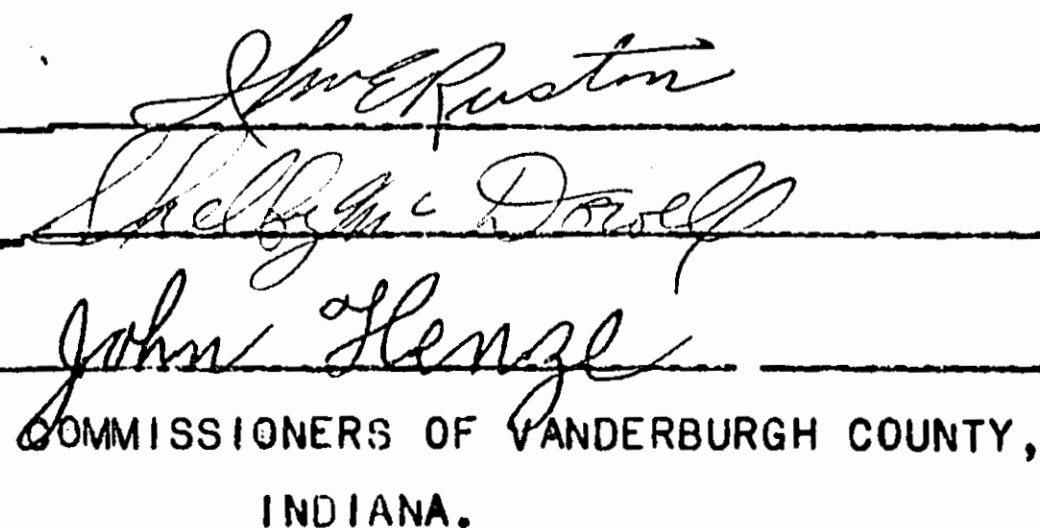 Ruston
Shelby Mc Dowell
John Henze
COMMISSIONERS OF VANDERBURGH COUNTY,
INDIANA.